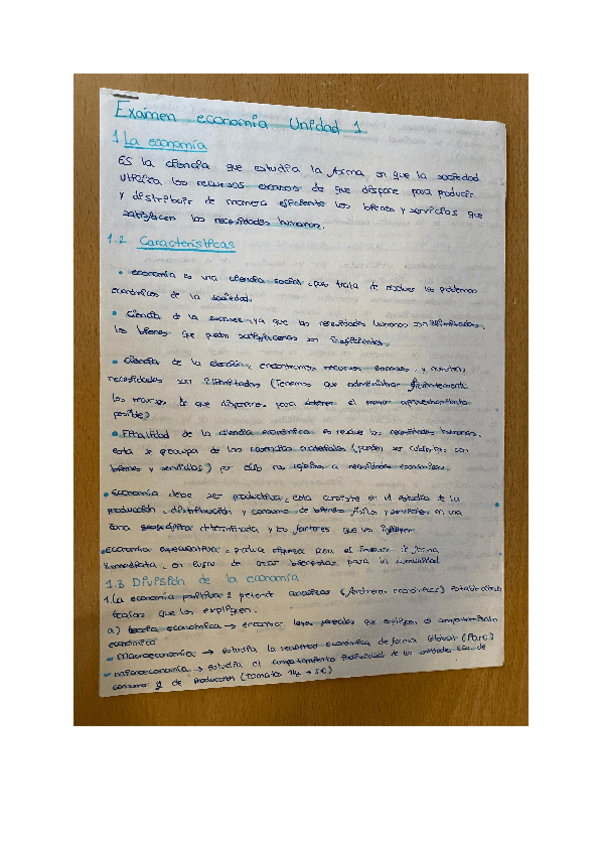 Examen economía Unidad 1
1 La economía
ES la ciencia que estudia la forma en que la sociedad
utiliza los recursos escasos de que dispone para producir
y distribuir de manera eficiente los bienes y servicios que
satisfacen las necesidades humanas.
1.2 Características
• economía es una ciencia social, pues trata de resolver los problemas
económicos de la sociedad.
• Ciencia de la escasez, ya que las necesidades humanas son ilimitadas,
los bienes que pueden satisfacerlas son insuficientes.
• Ciencia de la elección, encontramos recursos escasos, y nuestras
necesidades son ilimitadas (Tenemos que administrar eficientemente
los recursos de que disponemos para obtener el mayor aprovechamiento
posible)
• Finalidad de la ciencia económica es resolver las necesidades humanas,
esta se preocupa de las carencias materiales (pueden ser cubiertas con
bienes y servicios) por ello nos referimos a necesidades económicas.
• Economía debe ser productiva, esta consiste en el estudio de la
producción, distribución y consumo de bienes y servicios en una
zona geográfica determinada y los factores que los influyen
• Economía especulativa: produce riqueza para el inversor de forma
inmediata, en lugar de crear bienestar para la comunidad
1.3 División de la economía
1. La economía positiva: pretende analizar (fenómenos económicos) estableciendo
teorías que los expliquen.
a) teoría económica → encontrar leyes generales que expliquen el comportamiento
económico
- Macroeconomía → estudia la realidad económica de forma global (Paro)
- microeconomía → estudia el comportamiento individual de las unidades eco. de
consumo y de producción (tomate 1kg → 5€)